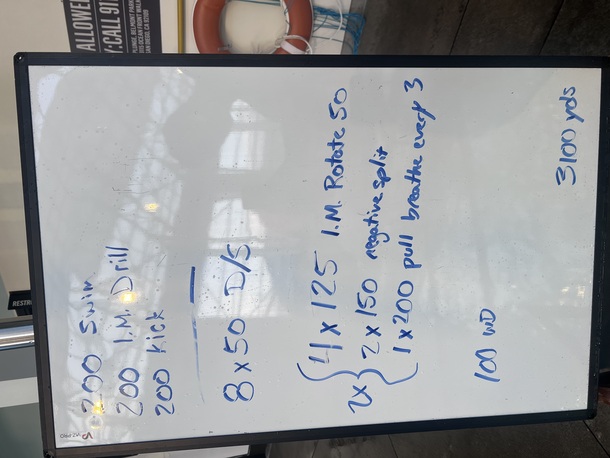 200 Swim
200 I.M. Drill
200 Kick
8 x 50 D/S
2x { 4 x 125 I.M. Rotate 50
2 x 150 negative split
1 x 200 pull breathe every 3
100 WD
3100 yds
ALLOWED
Y: CALL 911
RESTR